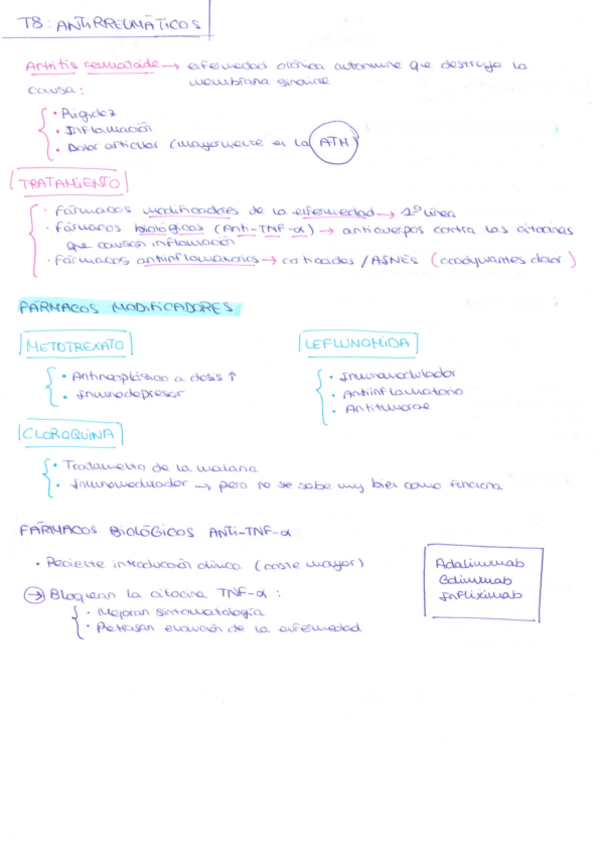 T8: ANTIRREUMÁTICOS
Artritis reumatoide → enfermedad crónica autoinmune que destruye la
membrana sinovial
Causa:
· Rigidez
· Inflamación
· Dolor articular (mayormente en la ATM)
TRATAMIENTO
· Fármacos modificadores de la enfermedad → 1ª línea
· Fármacos biológicos (Anti-TNF-α) → anticuerpos contra las citocinas
que causan inflamación
· Fármacos antiinflamatorios → corticoides / AINEs (coadyuvantes dolor)
FÁRMACOS MODIFICADORES
METOTREXATO
· Antineoplásico a dosis ↑
· Inmunodepresor
LEFLUNOMIDA
· Inmunomodulador
· Antiinflamatorio
· Antitumoral
CLOROQUINA
· Tratamiento de la malaria
· Inmunomodulador → pero no se sabe muy bien como funciona
FÁRMACOS BIOLÓGICOS ANTI-TNF-α
· Reciente introducción clínica (coste mayor)
→ Bloquean la citocina TNF-α:
· Mejoran sintomatología
· Retrasan evolución de la enfermedad
Adalimumab
Golimumab
Infliximab